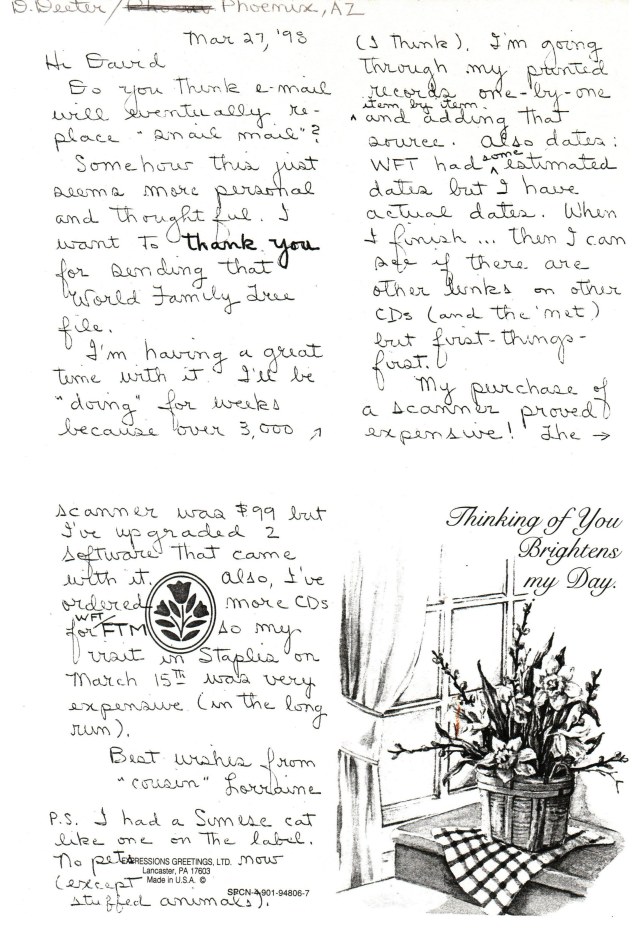 D. Deeter / Phoenix, AZ
Mar 27, '98
Hi David
Do you think e-mail
will eventually re-
place "snail mail"?
Somehow this just
seems more personal
and thoughtful. I
want to thank you
for sending that
World Family Tree
file.
I'm having a great
time with it. I'll be
"doing" for weeks
because over 3,000 ↗
(I think). I'm going
through my printed
records one-by-one
item by item.
^ and adding that
source. Also dates:
WFT had some estimated
dates but I have
actual dates. When
I finish ... then I can
see if there are
other links on other
CDs (and the 'net)
but first-things-
first.
My purchase of
a scanner proved
expensive! The →
scanner was $99 but
I've upgraded 2
software that came
with it. Also, I've
ordered more CDs
WFT/
for FTM so my
visit in Staples on
March 15th was very
expensive (in the long
run).
Best wishes from
"cousin" Lorraine
P.S. I had a Simese cat
like one on the label.
No pets now
(except
stuffed animals).
EXPRESSIONS GREETINGS, LTD.
Lancaster, PA 17603
Made in U.S.A. ©
SPCN-4-901-94806-7
Thinking of You
Brightens
my Day.